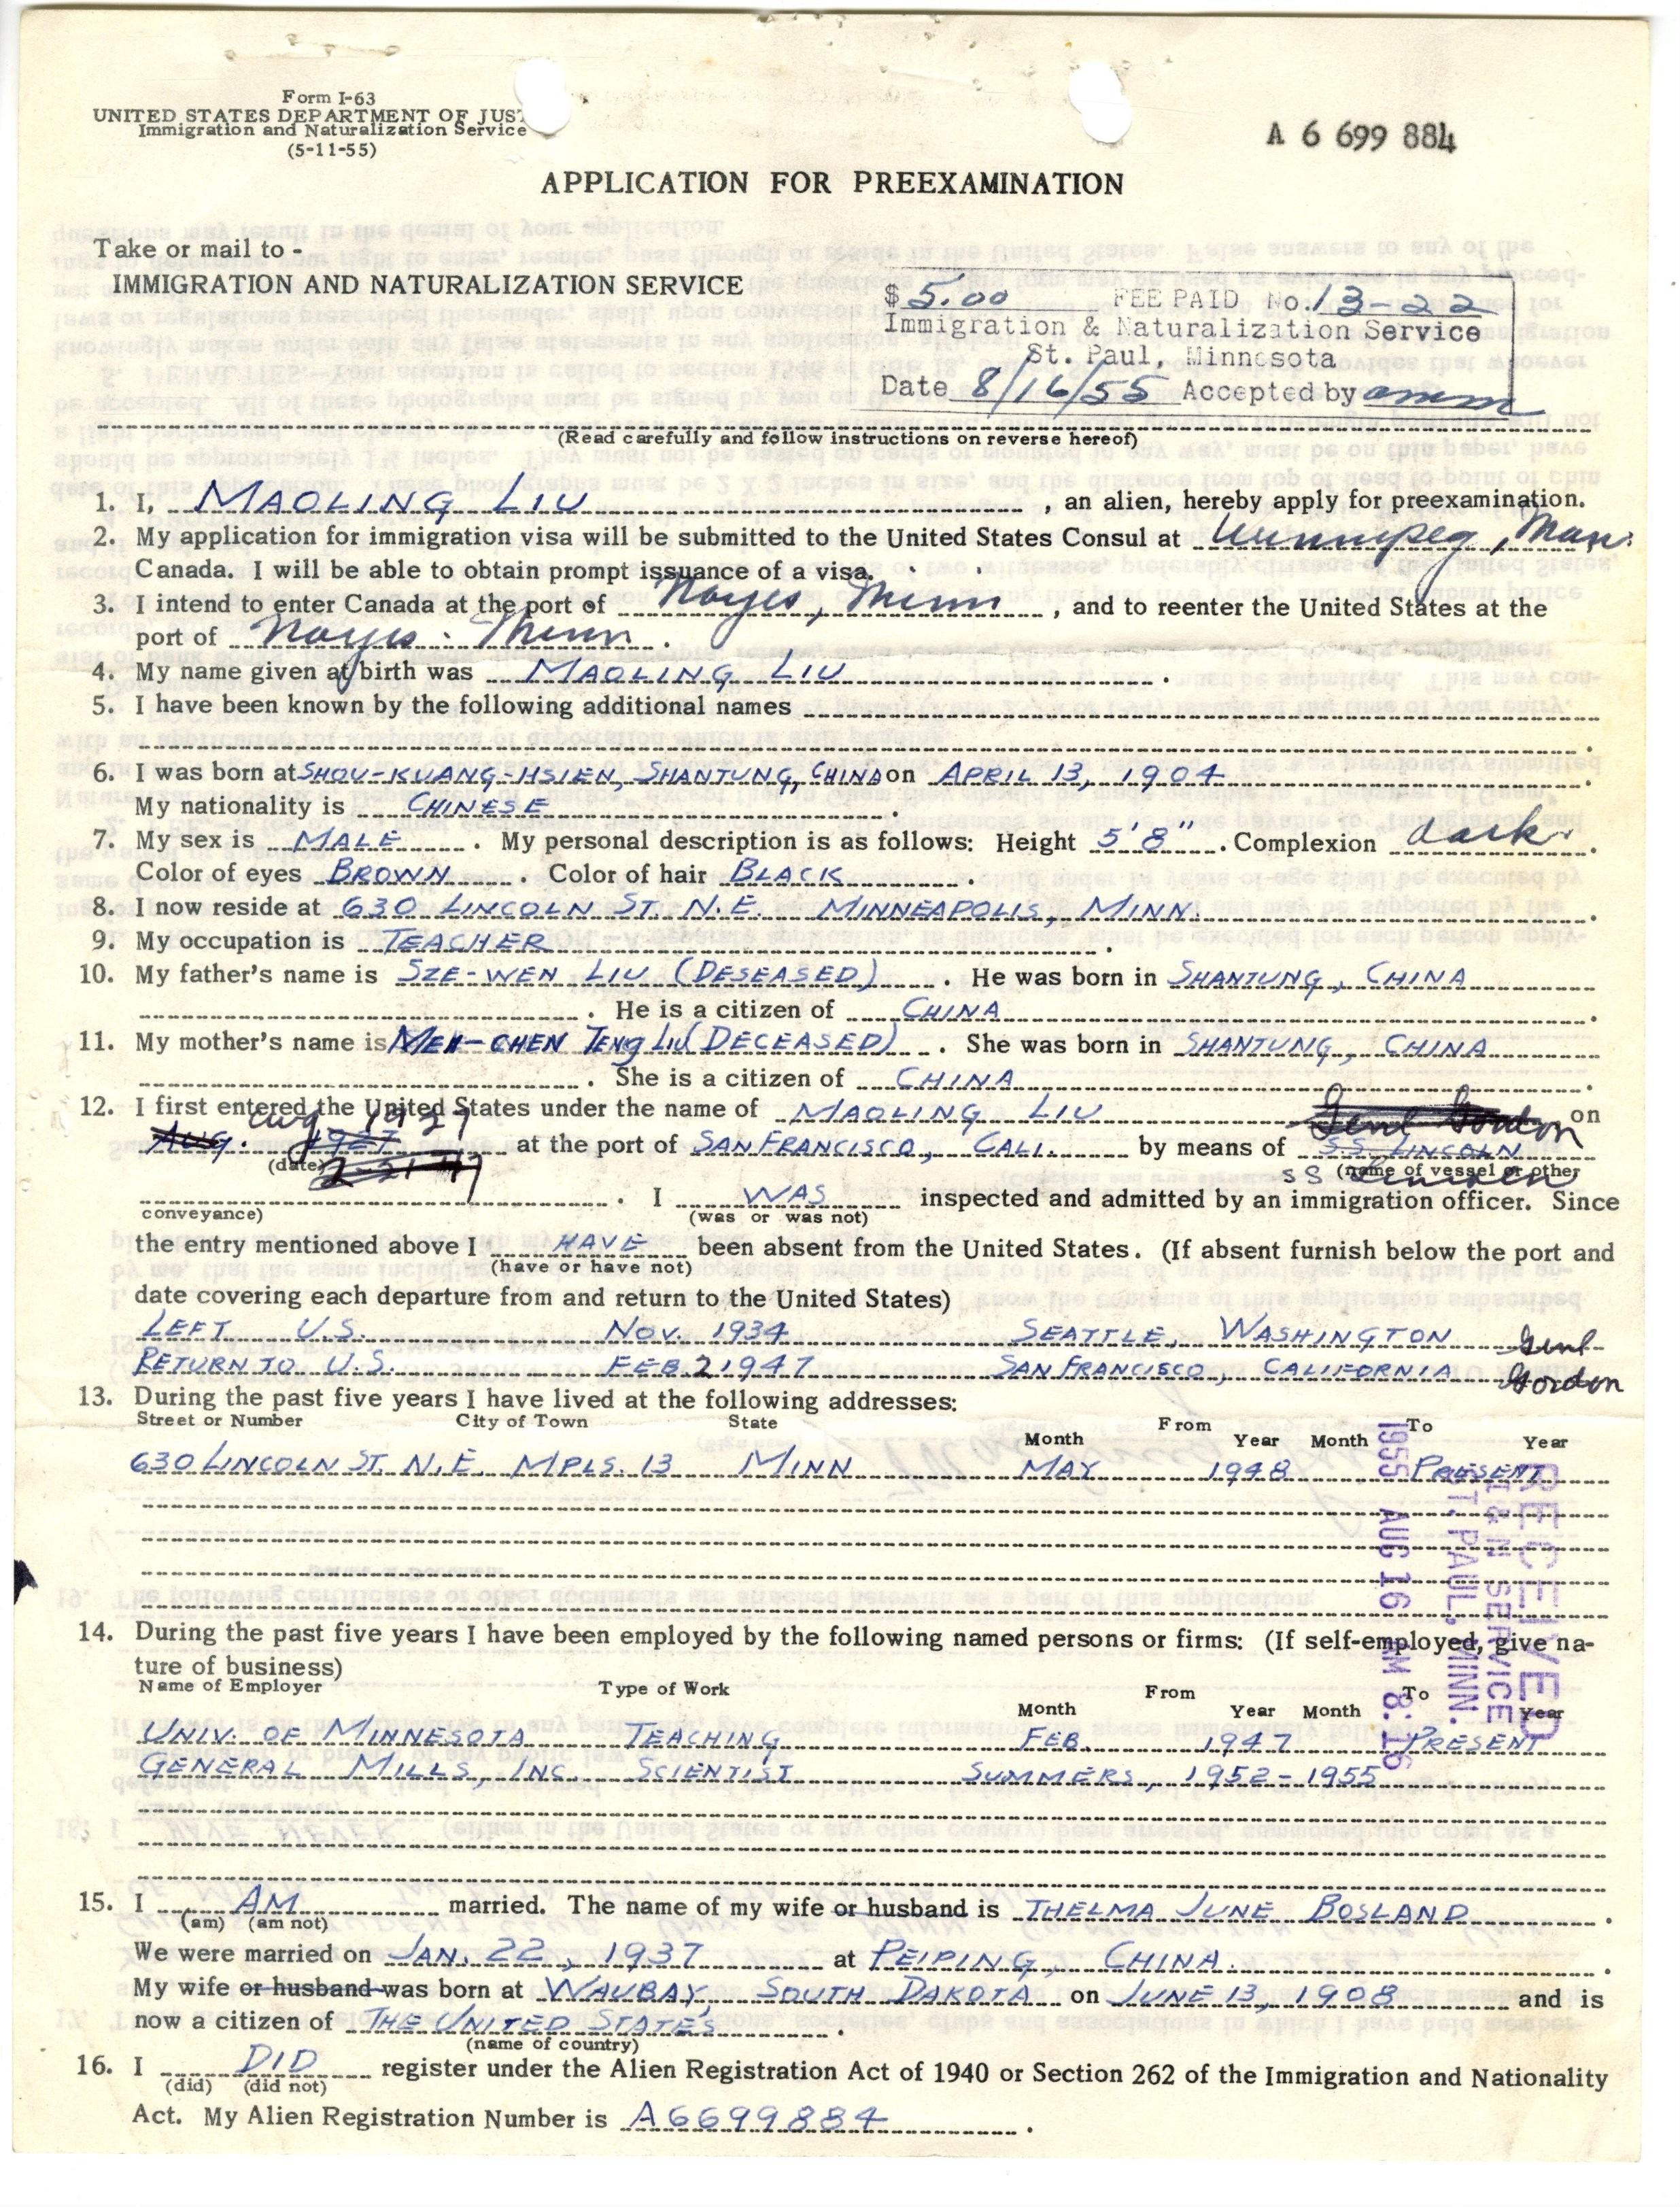 Form I-63
UNITED STATES DEPARTMENT OF JUST
Immigration and Naturalization Service
(5-11-55)
A 6 699 884
APPLICATION FOR PREEXAMINATION
Take or mail to -
IMMIGRATION AND NATURALIZATION SERVICE
$ 5.00 FEE PAID No. 13-22
Immigration & Naturalization Service
St. Paul, Minnesota
Date 8/16/55 Accepted by
(Read carefully and follow instructions on reverse hereof)
1. I, MAOLING LIU , an alien, hereby apply for preexamination.
2. My application for immigration visa will be submitted to the United States Consul at Winnipeg, Man.
Canada. I will be able to obtain prompt issuance of a visa.
3. I intend to enter Canada at the port of Noyes, Minn , and to reenter the United States at the
port of Noyes. Minn .
4. My name given at birth was MAOLING LIU .
5. I have been known by the following additional names
6. I was born at SHOU-KUANG-HSIEN, SHANTUNG, CHINA on APRIL 13, 1904 .
My nationality is CHINESE .
7. My sex is MALE . My personal description is as follows: Height 5'8" . Complexion dark .
Color of eyes BROWN . Color of hair BLACK .
8. I now reside at 630 LINCOLN ST. N.E. MINNEAPOLIS, MINN. .
9. My occupation is TEACHER .
10. My father's name is SZE-WEN LIU (DESEASED) . He was born in SHANTUNG, CHINA
. He is a citizen of CHINA .
11. My mother's name is MEI-CHEN TENG LIU (DECEASED) . She was born in SHANTUNG, CHINA
. She is a citizen of CHINA .
12. I first entered the United States under the name of MAOLING LIU Genl Gordon on
Aug 1927
AUG. 1927 at the port of SAN FRANCISCO, CALI. by means of S.S. LINCOLN
(date) 2-21-47 SS Lincoln (name of vessel or other
conveyance) . I WAS inspected and admitted by an immigration officer. Since
(was or was not)
the entry mentioned above I HAVE been absent from the United States. (If absent furnish below the port and
(have or have not)
date covering each departure from and return to the United States)
LEFT U.S. NOV. 1934 SEATTLE, WASHINGTON
RETURN TO U.S. FEB. 21947 SAN FRANCISCO, CALIFORNIA Genl Gordon
13. During the past five years I have lived at the following addresses:
Street or Number City of Town State From To
Month Year Month Year
630 LINCOLN ST. N.E. MPLS. 13 MINN MAY 1948 PRESENT
RECEIVED
I & N SERVICE
ST. PAUL, MINN.
1955 AUG 16 AM 8:16
14. During the past five years I have been employed by the following named persons or firms: (If self-employed, give na-
ture of business)
Name of Employer Type of Work From To
Month Year Month Year
UNIV. OF MINNESOTA TEACHING FEB. 1947 PRESENT
GENERAL MILLS, INC. SCIENTIST SUMMERS, 1952-1955
15. I AM married. The name of my wife or husband is THELMA JUNE BOSLAND .
(am) (am not)
We were married on JAN. 22, 1937 at PEIPING, CHINA .
My wife or husband was born at WAUBAY, SOUTH DAKOTA on JUNE 13, 1908 and is
now a citizen of THE UNITED STATES .
(name of country)
16. I DID register under the Alien Registration Act of 1940 or Section 262 of the Immigration and Nationality
(did) (did not)
Act. My Alien Registration Number is A6699884 .